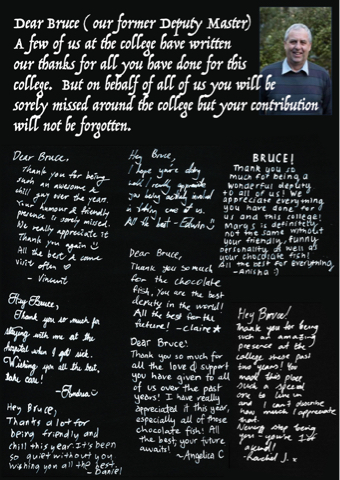 Dear Bruce ( our former Deputy Master)
A few of us at the college have written
our thanks for all you have done for this
college. But on behalf of all of us you will be
sorely missed around the college but your contribution
will not be forgotten.
Dear Bruce,
Thank you for being
such an awesome &
chill guy over the years.
Your humour & friendly
presence is sorely missed.
We really appreciate it
Thank you again
All the best & come
visit often
- Vincent
Hey Bruce,
Thank you so much for
staying with me at the
hospital when I got sick.
Wishing you all the best,
take care!
Hey Bruce,
Thanks a lot for
being friendly and
chill this year. It's been
so quiet without you.
Wishing you all the best.
- Daniel
Hey Bruce,
I hope you're doing
well. I really appreciate
you being
All the best - Edwin
Dear Bruce,
Thank you so much
for the chocolate
fish, You are the best
deputy in the world!
All the best for the
future! - Claire
Dear Bruce!
Thank you so much for
all the love & support
you have given to all
of us over the past
years! I have really
appreciated it this year,
especially all of those
chocolate fish! All
the best, your future
awaits!
~Angelica C
BRUCE!
Thank you so
much for being a
wonderful deputy
to all of us! We
appreciate everything
you have done for
us and this college!
Marys is definitely
not the same without
your friendly, funny
personality as well as
your chocolate fish!
All the best for everything,
-Anisha :)
Hey Bruce!
Thank you for being
such an amazing
presence at the
college these past
two years! You
made this place
such a special
one to live in
and I can't describe
how much I appreciate
that.
Never stop being
you - you're
- Rachel J. x